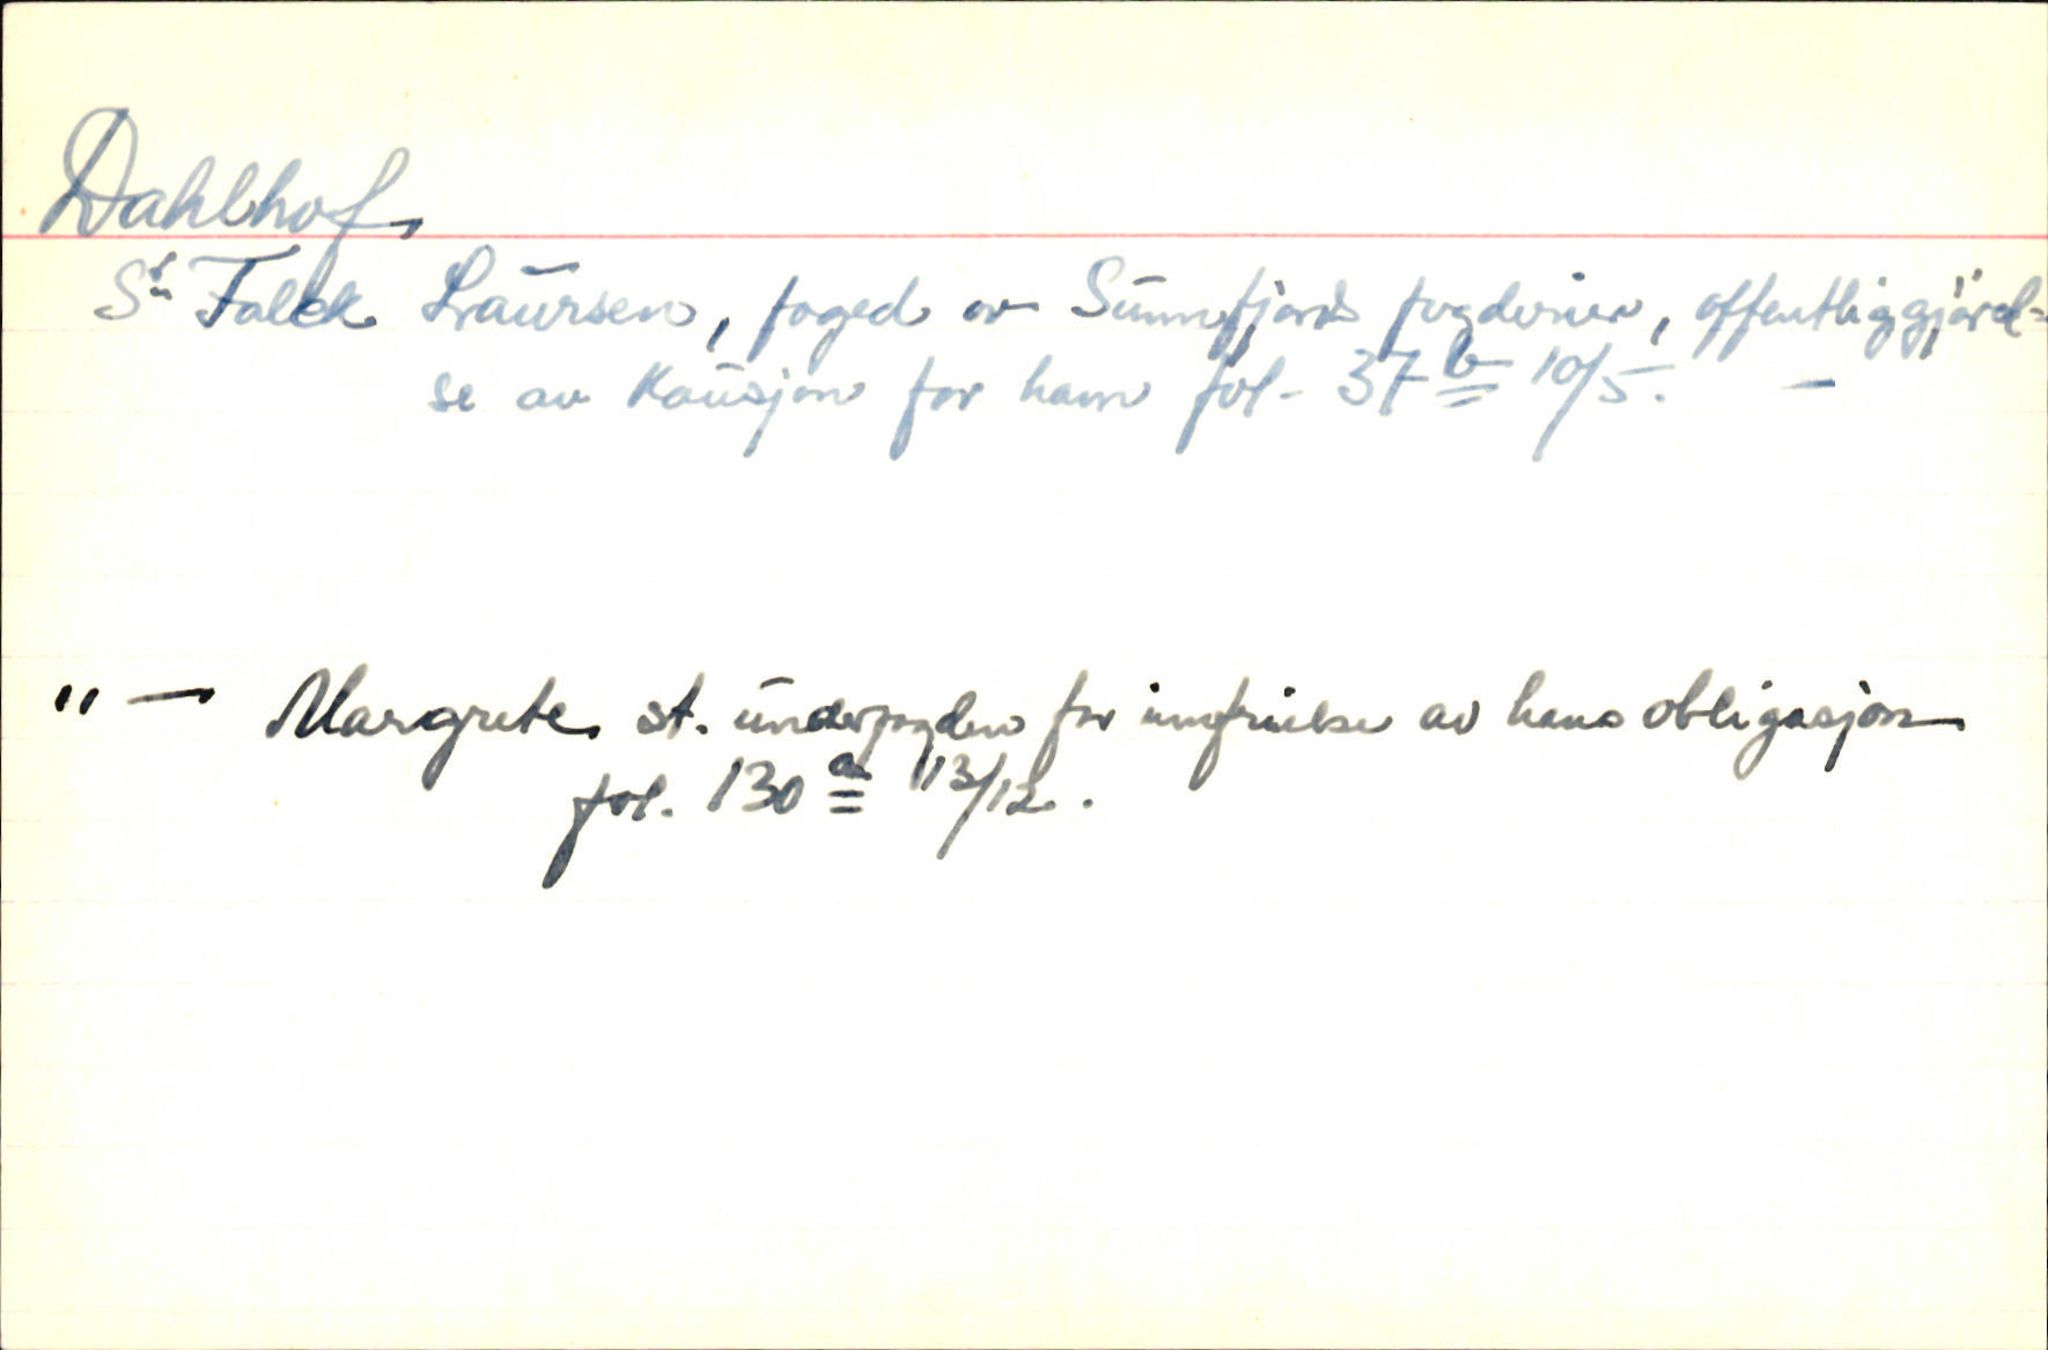 Dahlhof
Sr Falck Laursen, foged ov Sunnfjords fogderier, offentliggjörel-
se av Kausjon for ham fol. 37 b 10/5. —
" — Margrete st. underfogden for innfrielse av hans obligasjon
fol. 130 a 13/12.